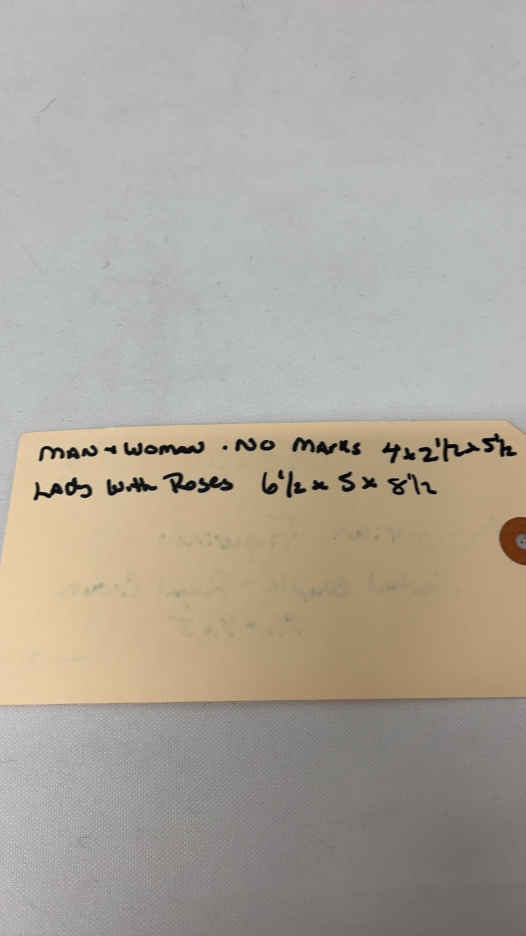 MAN + WOMAN . NO MARKS 4x2 1/2x5 1/2
LADY With Roses 6 1/2 x 5 x 8 1/2